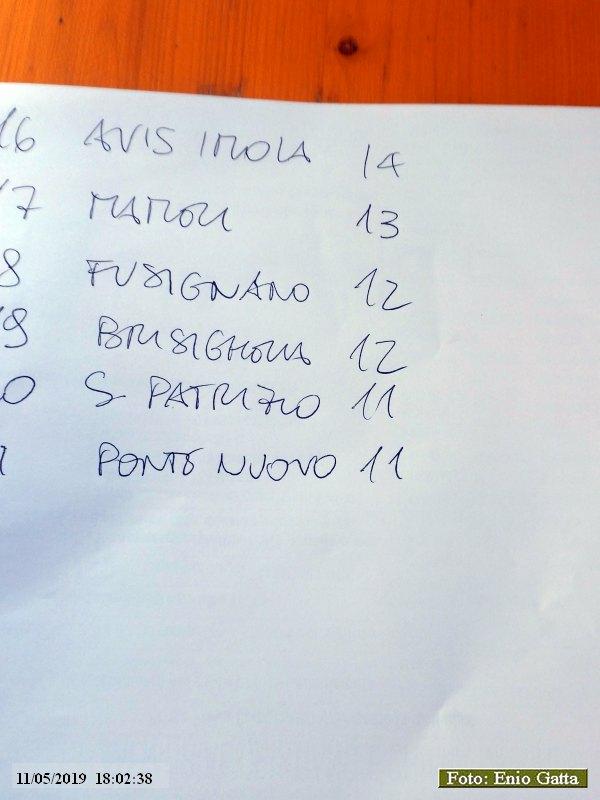 16 AVIS IMOLA 14
17 MAMELI 13
8 FUSIGNANO 12
19 BRISIGHELLA 12
0 S. PATRIZIO 11
1 PONTE NUOVO 11
11/05/2019 18:02:38
Foto: Enio Gatta